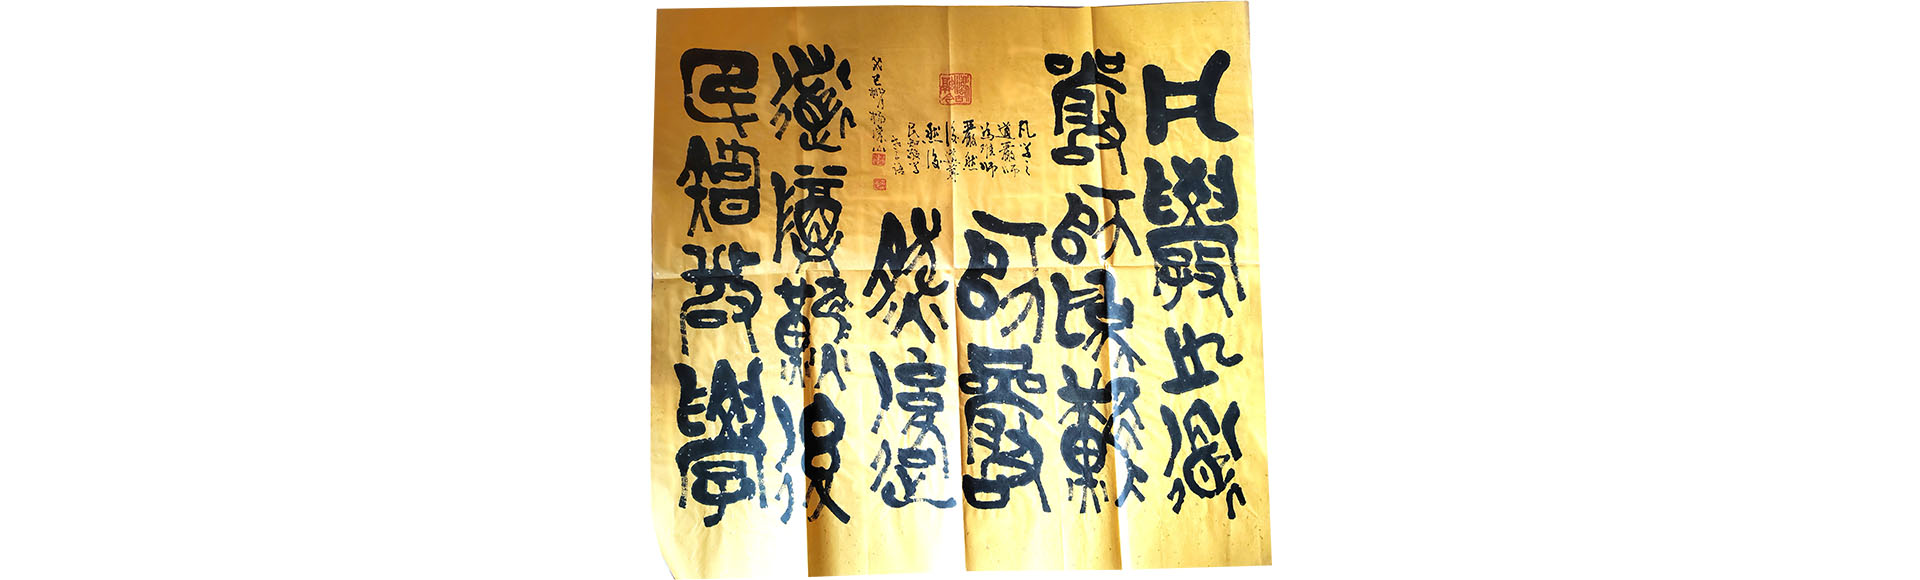 凡學之道
嚴師為難
師嚴
然後
道尊然後
民知敬學
凡学之
道嚴師
為難師
嚴然
後道尊
然後
民知敬学
癸巳柳月楊